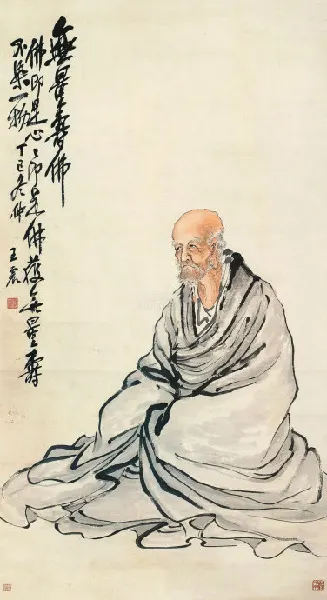 無量壽佛
佛即是心〻即是佛獲無量壽
不染一物丁巳冬仲
王震